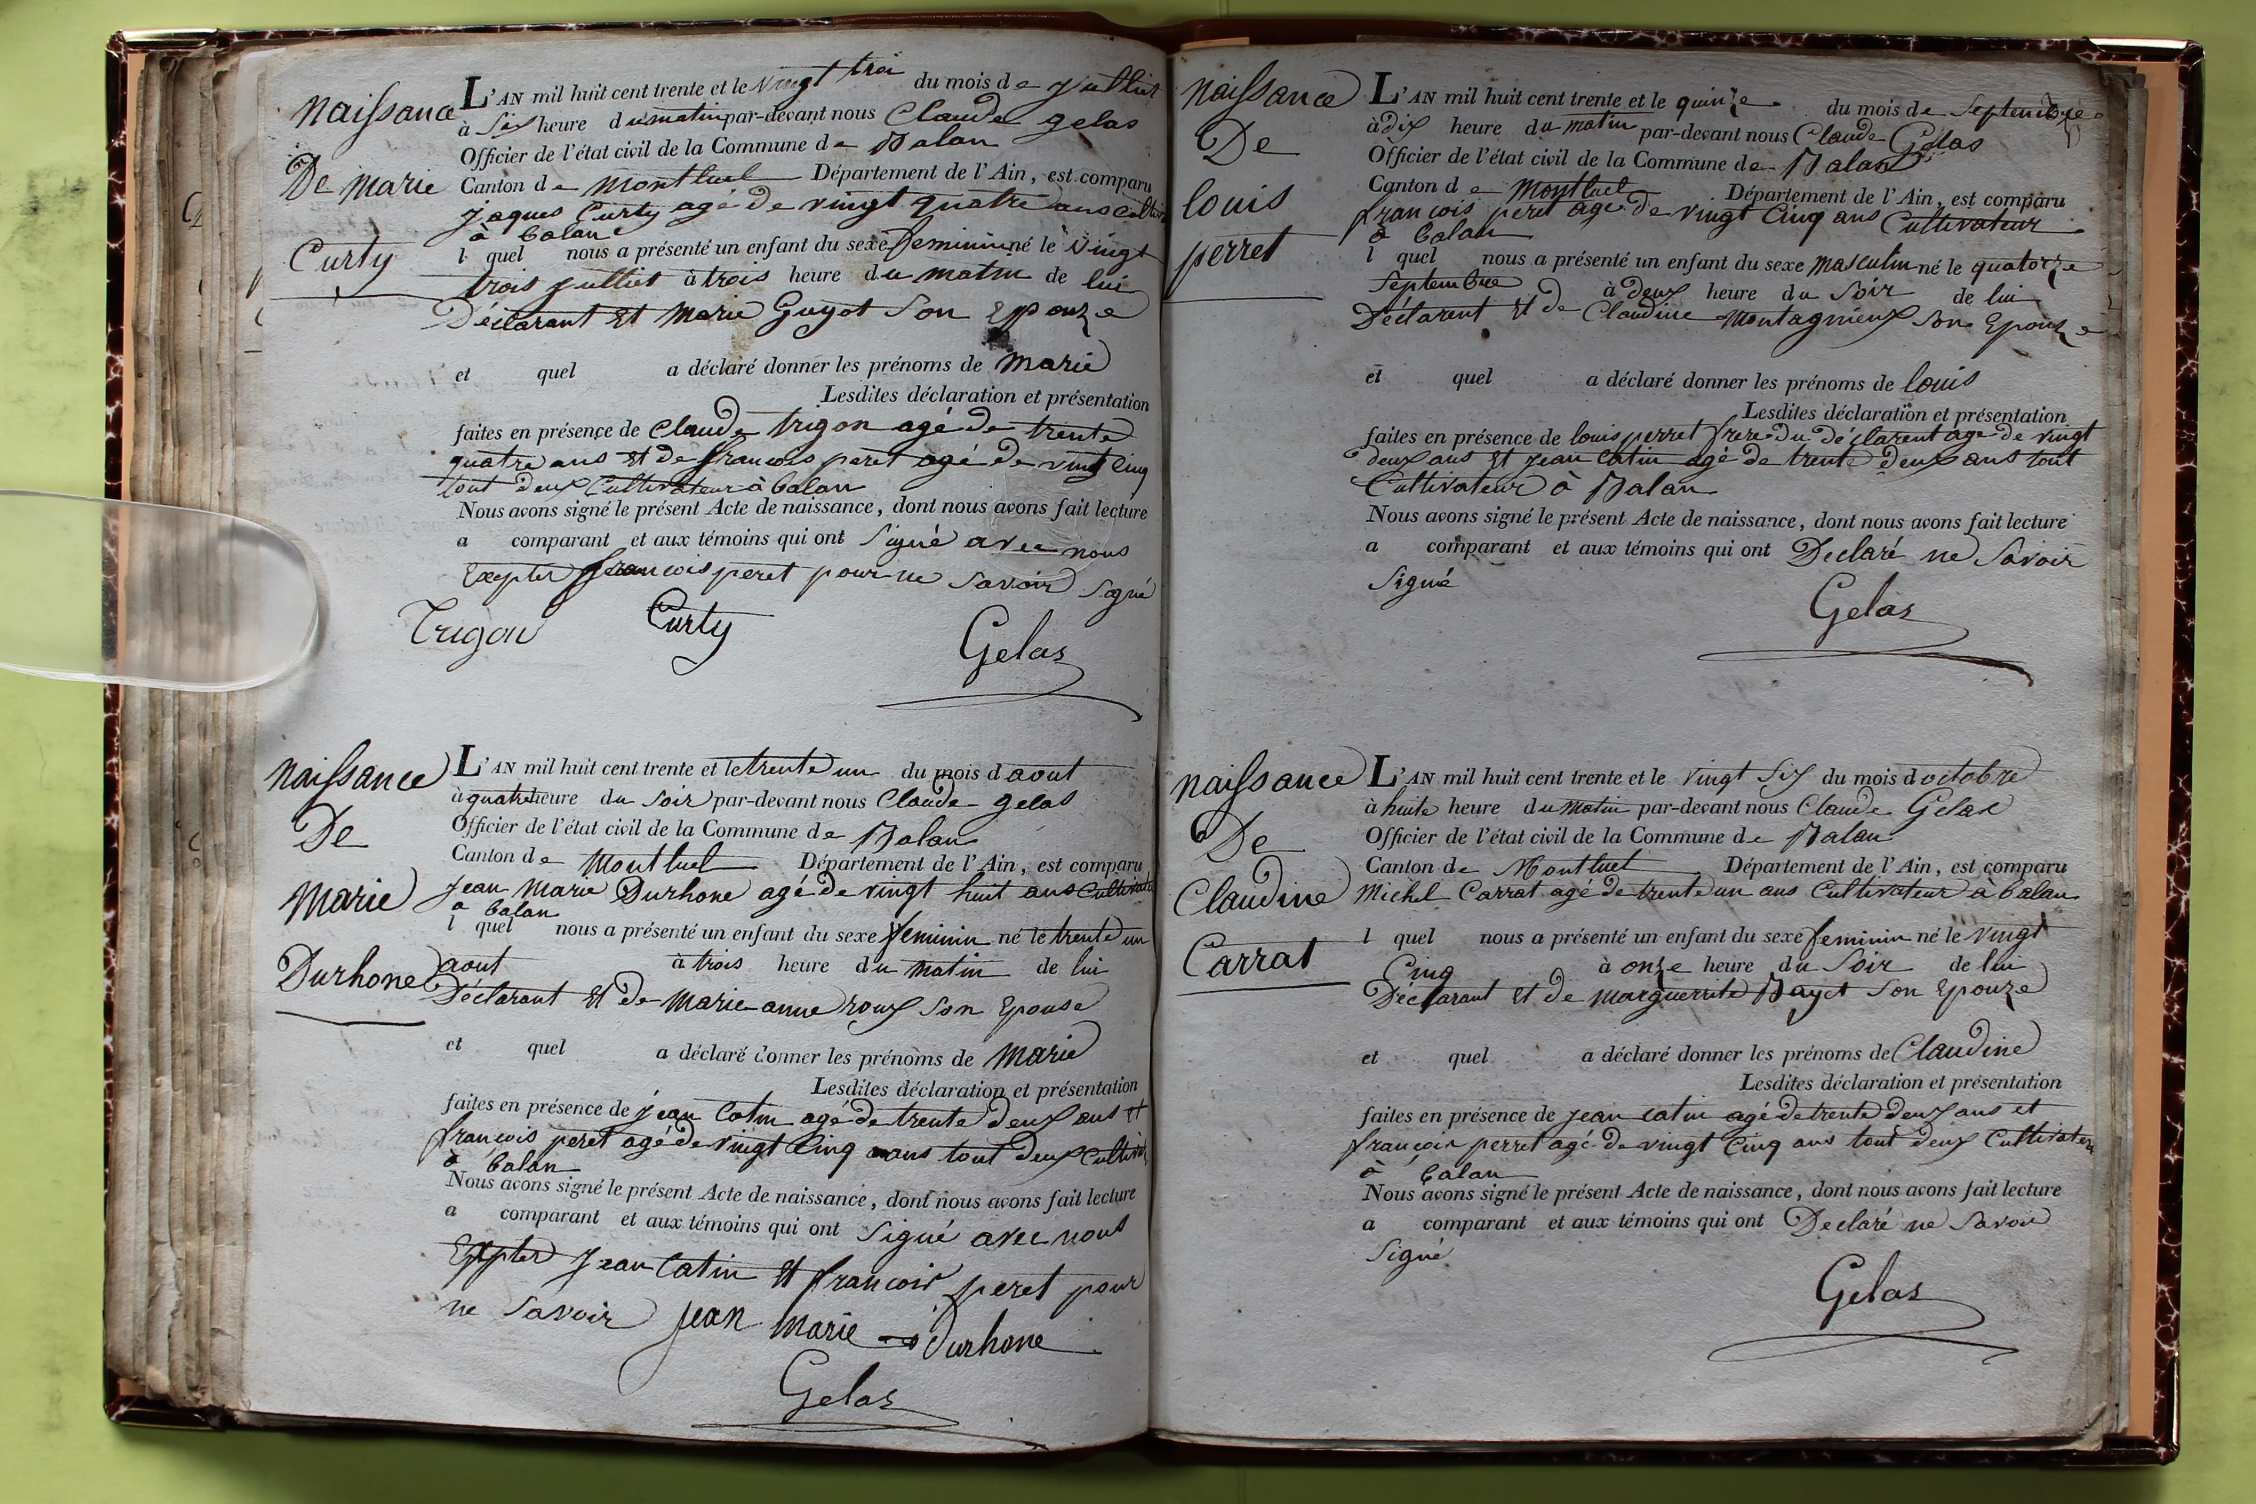 Naissance
De Marie
Curty
L'AN mil huit cent trente et le vingt troi du mois de juilliet
à Six heure du matin par-devant nous Claude gelas
Officier de l'état civil de la Commune de Balan
Canton de montluel Département de l'Ain, est comparu
jaques Curty agé De vingt quatre ans Cultiv
à balan
l quel nous a présenté un enfant du sexe feminin né le vingt
trois juilliet à trois heure du matin de lui
Déclarant Et Marie Guyot Son Epouze
et quel a déclaré donner les prénoms de Marie
Lesdites déclaration et présentation
faites en présence de Claude trigon agé de trente
quatre ans Et de francois peret agé De vingt Cinq
tout deux Cultivateur à balan
Nous avons signé le présent Acte de naissance, dont nous avons fait lecture
a comparant et aux témoins qui ont Signé avec nous
Exepter francois peret pour ne Savoir Signé
Trigon Curty
Gelas
Naissance
De
Marie
Durhone
L'AN mil huit cent trente et le trente un du mois d aout
à quatre heure du Soir par-devant nous Claude gelas
Officier de l'état civil de la Commune de Balan
Canton de Montluel Département de l'Ain, est comparu
Jean Marie Durhone agé De vingt huit ans Cultivate
a balan
l quel nous a présenté un enfant du sexe feminin né le trente un
aout à trois heure du matin de lui
Déclarant Et de Marie anne roux Son Epouse
et quel a déclaré donner les prénoms de Marie
Lesdites déclaration et présentation
faites en présence de jean Catin agé de trente deux ans Et
francois peret agé de vingt Cinq ans tout Deux Cultiv
à balan
Nous avons signé le présent Acte de naissance, dont nous avons fait lecture
a comparant et aux témoins qui ont Signé avec nous
Exepter Jean Catin Et francois peret pour
ne Savoir Jean Marie Durhone
Gelas
Naissance
De
louis
perret
L'AN mil huit cent trente et le quinze du mois de Septembre
à dix heure du matin par-devant nous Claude Gelas
Officier de l'état civil de la Commune de Balan
Canton de Montluel Département de l'Ain, est comparu
francois peret age de vingt Cinq ans Cultivateur
à balan
l quel nous a présenté un enfant du sexe masculin né le quatorze
Septembre à deux heure du Soir de lui
Déclarent Et de Claudine Montagnieux Son Epouze
et quel a déclaré donner les prénoms de louis
Lesdites déclaration et présentation
faites en présence de louis perret frere du déclarent age de vingt
deux ans Et jean Catin agé de trente deux ans tout
Cultivateur à Balan
Nous avons signé le présent Acte de naissance, dont nous avons fait lecture
a comparant et aux témoins qui ont Declaré ne Savoir
Signé
Gelas
Naissance
De
Claudine
Carrat
L'AN mil huit cent trente et le vingt Six du mois d octobre
à huite heure du Matin par-devant nous Claude Gelas
Officier de l'état civil de la Commune de Balan
Canton de Montluel Département de l'Ain, est comparu
Michel Carrat agé de trente un ans Cultivateur à balan
l quel nous a présenté un enfant du sexe feminin né le vingt
Cinq à onze heure du Soir de lui
Déclarant Et de Marguerite Bayet Son Epouze
et quel a déclaré donner les prénoms de Claudine
Lesdites déclaration et présentation
faites en présence de jean catin agé de trente deux ans et
francois perret agé de vingt Cinq ans tout deux Cultivateur
à balan
Nous avons signé le présent Acte de naissance, dont nous avons fait lecture
a comparant et aux témoins qui ont Declaré ne Savoir
Signé
Gelas